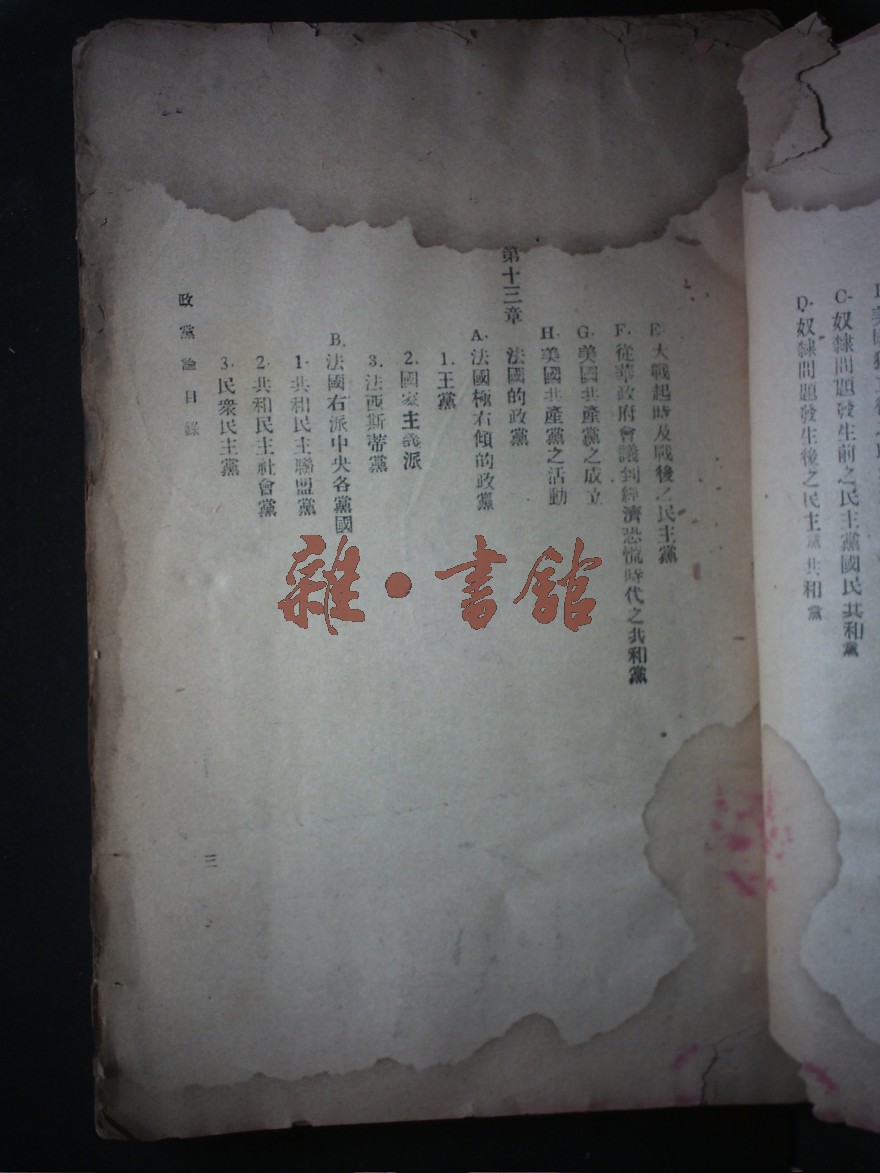 C. 奴隸問題發生前之民主黨國民共和黨
D. 奴隸問題發生後之民主黨 共和黨
E. 大戰起時及戰後之民主黨
F. 從華政府會議到經濟恐慌時代之共和黨
G. 美國共產黨之成立
H. 美國共產黨之活動
第十三章 法國的政黨
A. 法國極右傾的政黨
1. 王黨
2. 國家主義派
3. 法西斯蒂黨
B. 法國右派中央各黨國
1. 共和民主聯盟黨
2. 共和民主社會黨
3. 民衆民主黨
政黨論目錄
三
雜·書館